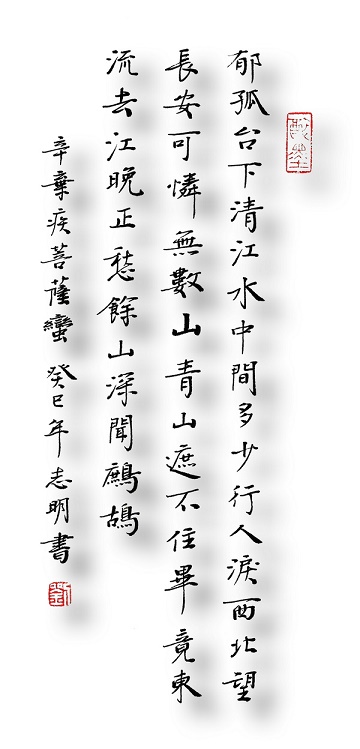 郁孤台下清江水中間多少行人淚西北望
長安可憐無數山青山遮不住畢竟東
流去江晚正愁餘山深聞鷓鴣
辛棄疾菩薩蠻 癸巳年志明書